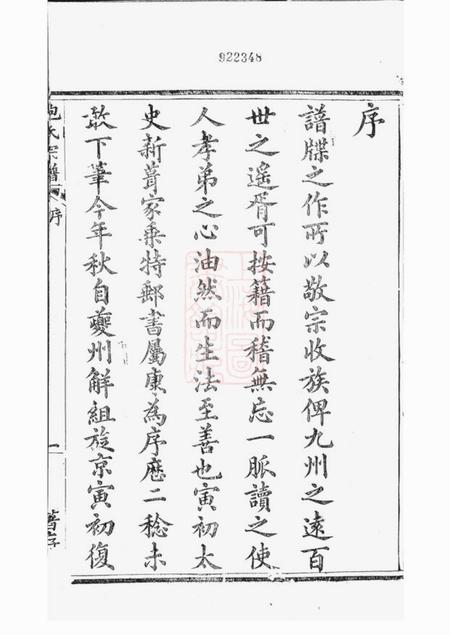 922348
序
譜牒之作所以敬宗收族俾九州之遠百
世之遙胥可按籍而稽無忘一脈讀之使
人孝弟之心油然而生法至善也寅初太
史新葺家乘特郵書屬康為序歷二稔未
敢下筆今年秋自夔州解組旋京寅初復
氏宗譜
序
一